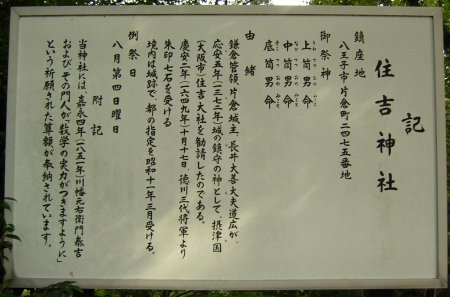 記
住吉神社
鎮座地
八王子市片倉町二四七五番地
御祭神
上筒男命
中筒男命
底筒男命
由緒
鎌倉管領、片倉城主、長井大善大夫道広が、
応安五年(一三七二年)城の鎮守の神として、摂津国
(大阪市)住吉大社を勧請したのである。
慶安二年(一六四九年)十月十七日、徳川三代将軍より
朱印七石を受ける
境内は城跡で、都の指定を昭和十一年三月受ける。
例祭日
八月第四日曜日
附記
当神社には、嘉永四年(一八五一年)川幡元右衛門泰吉
およびその門人が「数学の実力がつきますように」
という祈願された算額が奉納されています。